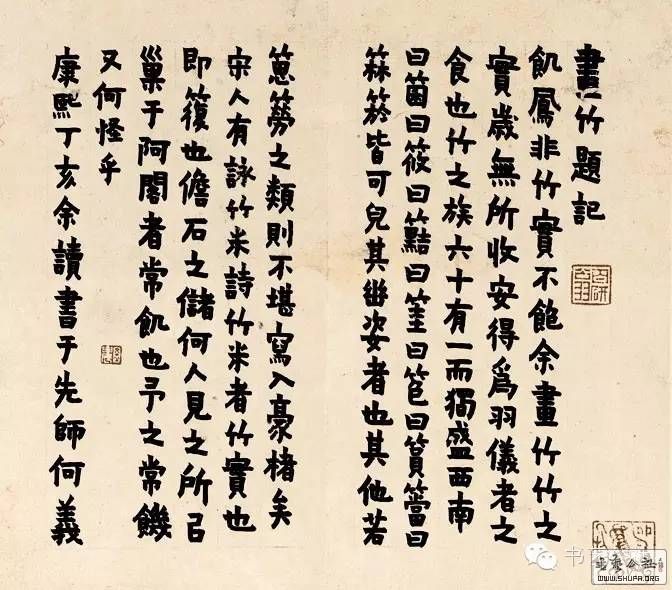 畫竹題記
飢鳳非竹實不飽余畫竹竹之
實歲無所收安得爲羽儀者之
食也竹之族六十有一而獨盛西南
曰箘曰筱曰曰筀曰笆曰篔簹曰
箖箊皆可皃其幽姿者也其他若
簩之類則不堪寫入豪楮矣
宋人有詠竹米詩竹米者竹實也
即也儋石之儲何人見之所㠯
巢于阿閣者常飢也予之常饑
又何怪乎
康熙丁亥余讀書于先師何義
书
WWW.SHUFA.ORG